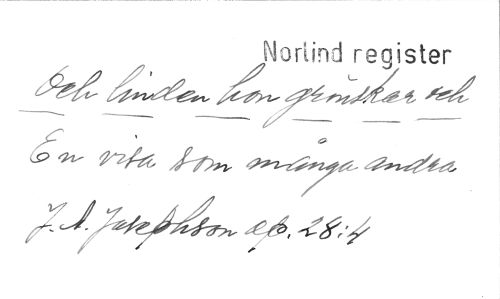 Norlind register
Och linden hon grönskar och
En visa som många andra
J. A. Josephson op. 28:4